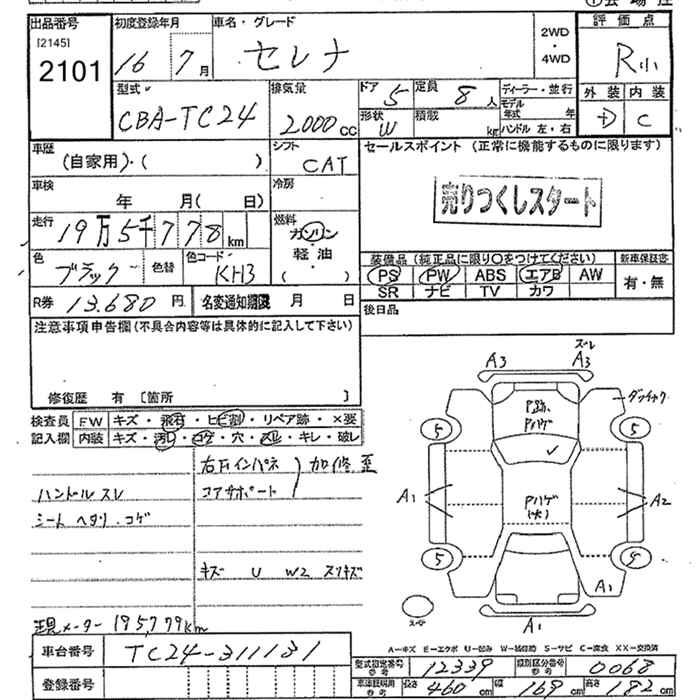 出品番号
[2145]
2101
初度登録年月
16 7月
車名・グレード
セレナ
2WD
・
4WD
評価点
R小
型式
CBA-TC24
排気量
2000cc
ドア
5
定員
8人
形状
W
積載
kg
ディーラー・並行
モデル年式 年
ハンドル 左・右
外装 内装
D C
車歴
(自家用)・( )
シフト
CAT
車検
年 月( 日)
冷房
走行
19万5千778km
燃料
ガソリン
・
軽油
( )
色
ブラック
色替
色コード
KH3
R券 13.680円
名変通知期限 月 日
セールスポイント (正常に機能するものに限ります)
売りつくしスタート
装備品(純正品に限り〇をつけてください)
PS PW ABS エアB AW
SR ナビ TV カワ
新車保証書
有・無
後日品
注意事項申告欄(不具合内容等は具体的に記入して下さい)
修復歴 有 [箇所 ]
検査員記入欄
FW キズ・飛石・ヒビ割・リペア跡・×要
内装 キズ・汚レ・コゲ・穴・スレ・キレ・破レ
右Fインパネ
コアサポート
加修歪
ハンドルスレ
シートヘタリ.コゲ
キズ U W2 スリキズ
現メーター 195,779km
車台番号 TC24-311131
登録番号
A3
ズレ
A3
P跡.
Pハゲ
5
5
A1
A2
Pハゲ
(大)
5
A1
A1
A-キズ E-エクボ U-凹み W-補修跡 S-サビ C-腐食 XX-交換済
型式指定番号 参考 12339
類別区分番号 参考 0068
車庫証明用 参考 長さ 460cm 幅 169cm 高さ 182cm